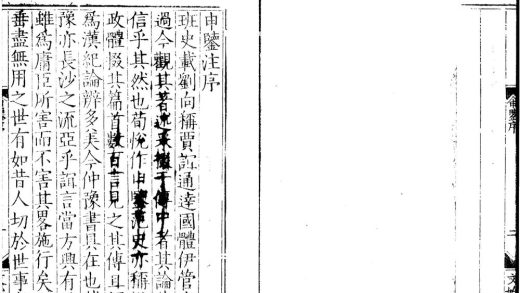 申鑒注序
班史載劉向稱賈誼通達國體伊管
過今觀其著述于傳中者其論
信乎其然也荀悅作申鑒范史亦稱
政體掇其篇首數百言見之其傳且
爲漢紀論辨多美今仲豫書具在也
豫亦長沙之流亞乎誼言當方興有
雖爲庸臣所害而不害其畧施行矣
垂盡無用之世有如昔人切於世事